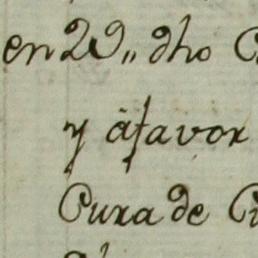 en 29,, dho
y á favor
Cura de